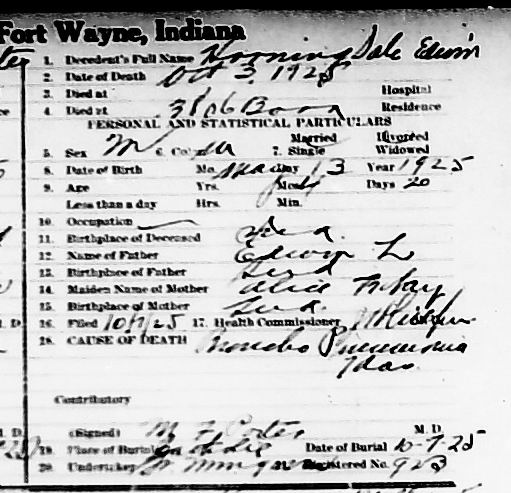 Fort Wayne, Indiana
1. Decedent's Full Name Horning Dale Edwin
2. Date of Death Oct 3, 1925
3. Died at Hospital
4. Died at Residence
PERSONAL AND STATISTICAL PARTICULARS
Married Divorced
5. Sex M 6. Color W 7. Single Widowed
8. Date of Birth Mo. May Day 13 Year 1925
9. Age Yrs. Mos. 4 Days 20
Less than a day Hrs. Min.
10. Occupation
11. Birthplace of Deceased Ind.
12. Name of Father Edwin L
13. Birthplace of Father Ind
14. Maiden Name of Mother Alice
15. Birthplace of Mother Ind.
M. D. 16. Filed 10/7/25 17. Health Commissioner
18. CAUSE OF DEATH Broncho Pneumonia
7 das.
Contributory
M. D. (Signed) M. F. Porter M. D.
19. Place of Burial Date of Burial 10-7-25
20. Undertaker Registered No. 923